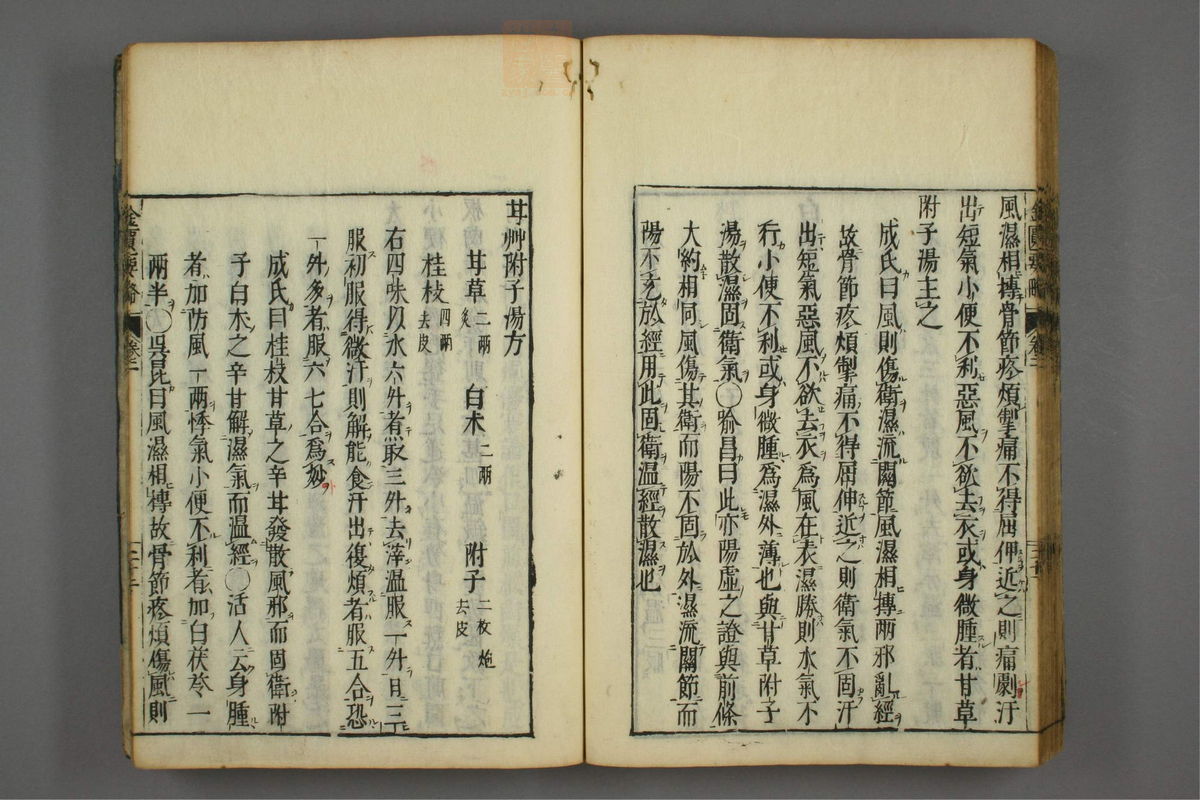 風濕相摶骨節疼煩掣痛不得屈伸近之則痛劇汗
出短氣小便不利惡風不欲去衣或身微腫者甘草
附子湯主之
成氏曰風則傷衛濕流關節風濕相摶兩邪亂經
故骨節疼煩掣痛不得屈伸近之則衛氣不固汗
出短氣惡風不欲去衣爲風在表濕勝則水氣不
行小便不利或身微腫爲濕外薄也與甘草附子
湯散濕固衛氣○喻昌曰此亦陽虛之證與前條
大約相同風傷其衛而陽不固於外濕流關節而
陽不充於經用此固衛温經散濕也
甘艸附子湯方
甘草二兩炙 白朮二兩 附子二枚炮去皮
桂枝四兩去皮
右四味以水六升煮取三升去滓温服一升日三
服初服得微汗則解能食汗出復煩者服五合恐
一升多者服六七合爲妙
成氏曰桂枝甘草之辛甘發散風邪而固衛附
子白朮之辛甘解濕氣而温經○活人云身腫
者加防風一兩悸氣小便不利者加白茯苓一
兩半○吳昆曰風濕相摶故骨節疼煩傷風則
金匱要略 卷二